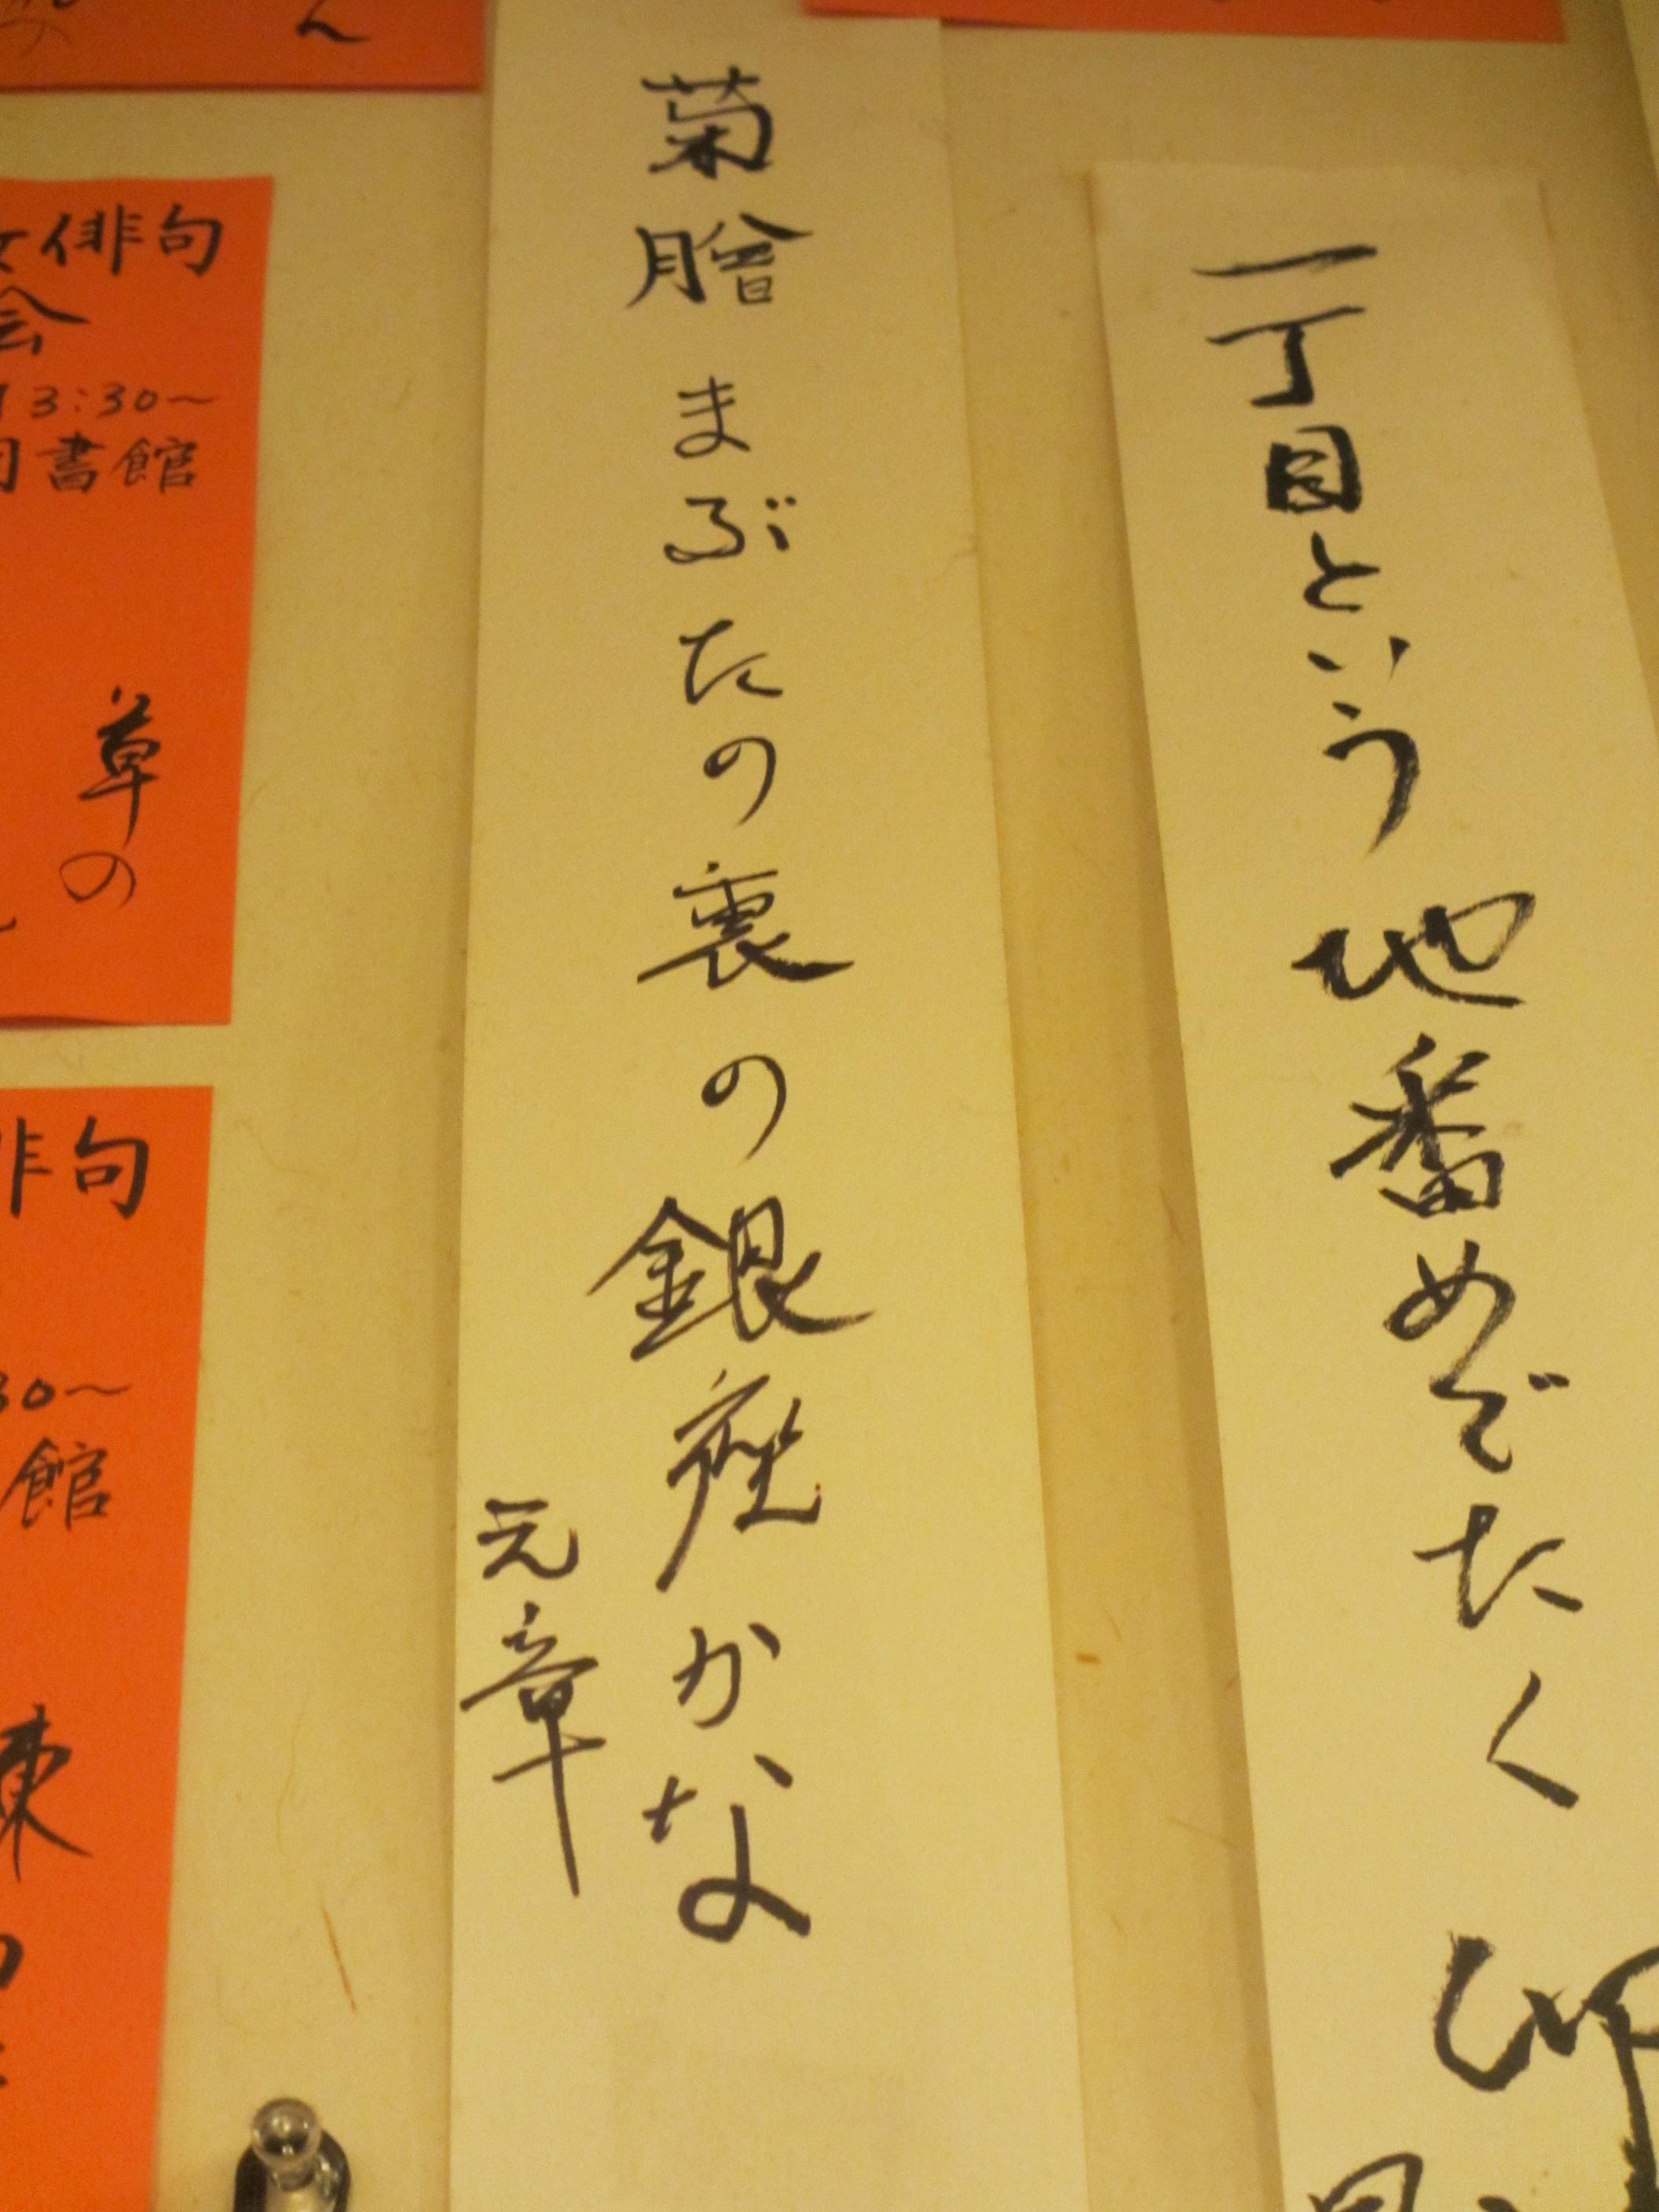 一丁目という地番めでたく
菊膾まぶたの裏の銀座かな
元章
俳句
会
13:30〜
書館
草の
俳句
30〜
館
東